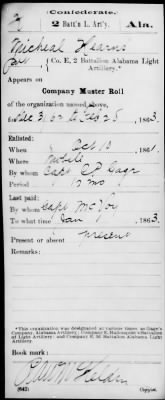 Confederate.
2 Batt'n L. Art'y. Ala.
Micheal Hearns
Co. E, 2 Battalion Alabama Light
Artillery.*
Appears on
Company Muster Roll
of the organization named above,
for Dec 31, 62 to Feb 28, 1863.
Enlisted:
When Oct 13, 1861.
Where Mobile
By whom Capt
Period 12 mo
Last paid:
By whom Capt
To what time Jan 1, 1863.
Present or absent present
Remarks:
*This organization was designated at various times as Gage's
Company Alabama Artillery; Company E, Hallonquist's Battalion
of Light Artillery; and Company E, 2d Battalion Alabama Light
Artillery.
Book mark:
(642)
Copyist.